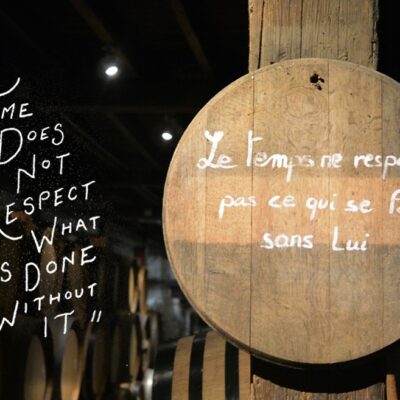 ME
DOES
NOT
RESPECT
WHAT
S DONE
WITHOUT
IT "
Le temps ne resp
pas ce qui se
sans Lui